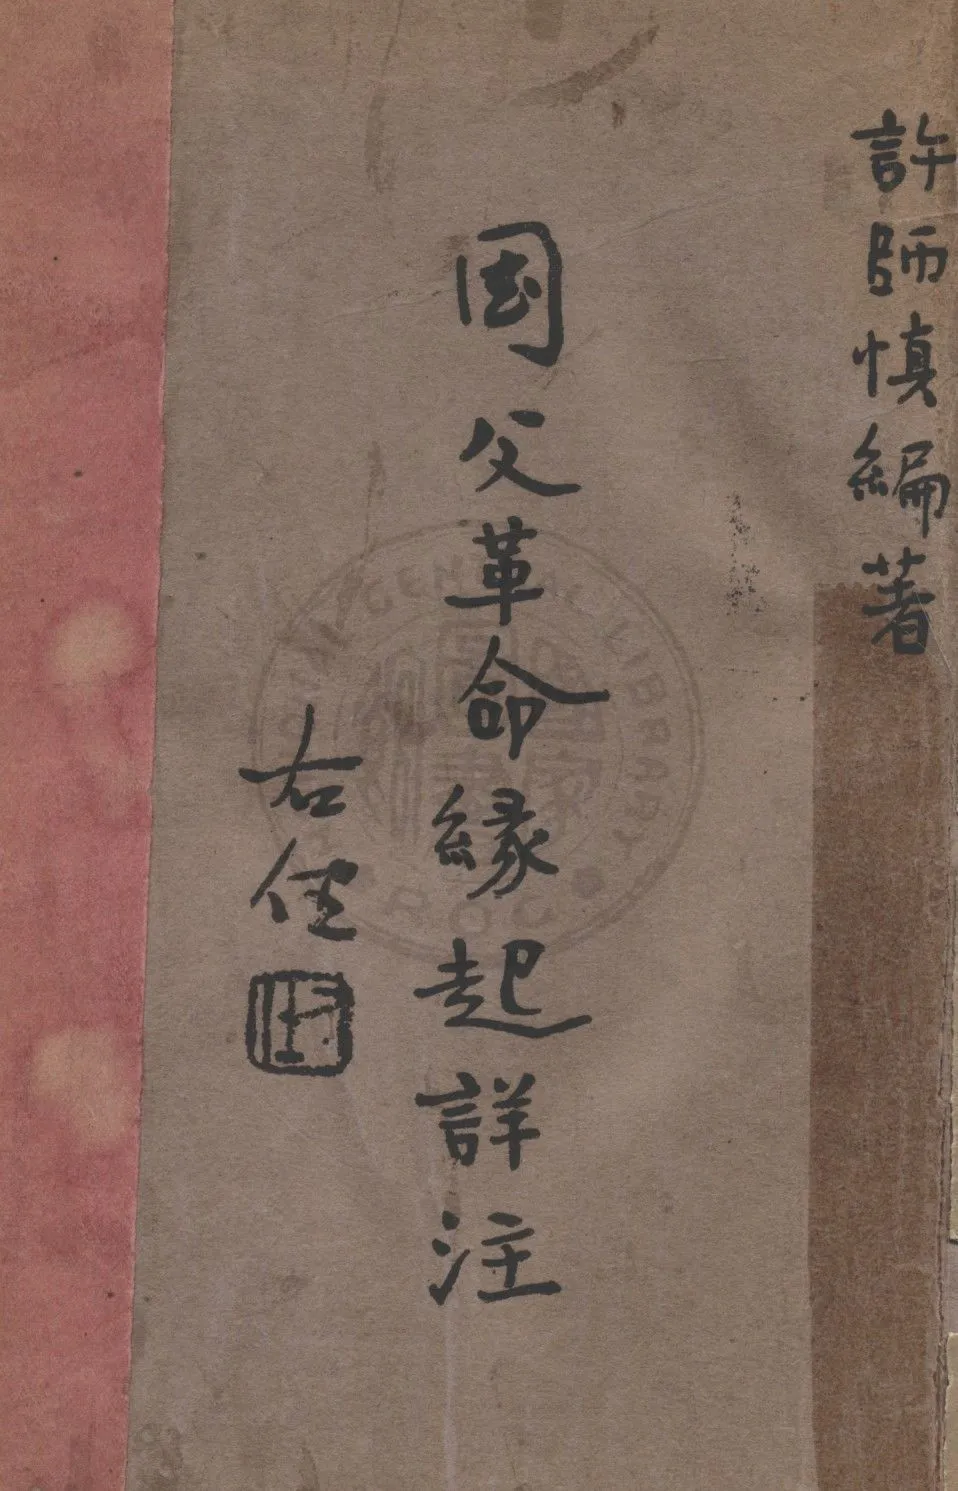 許師慎編著
國父革命緣起詳注
右任